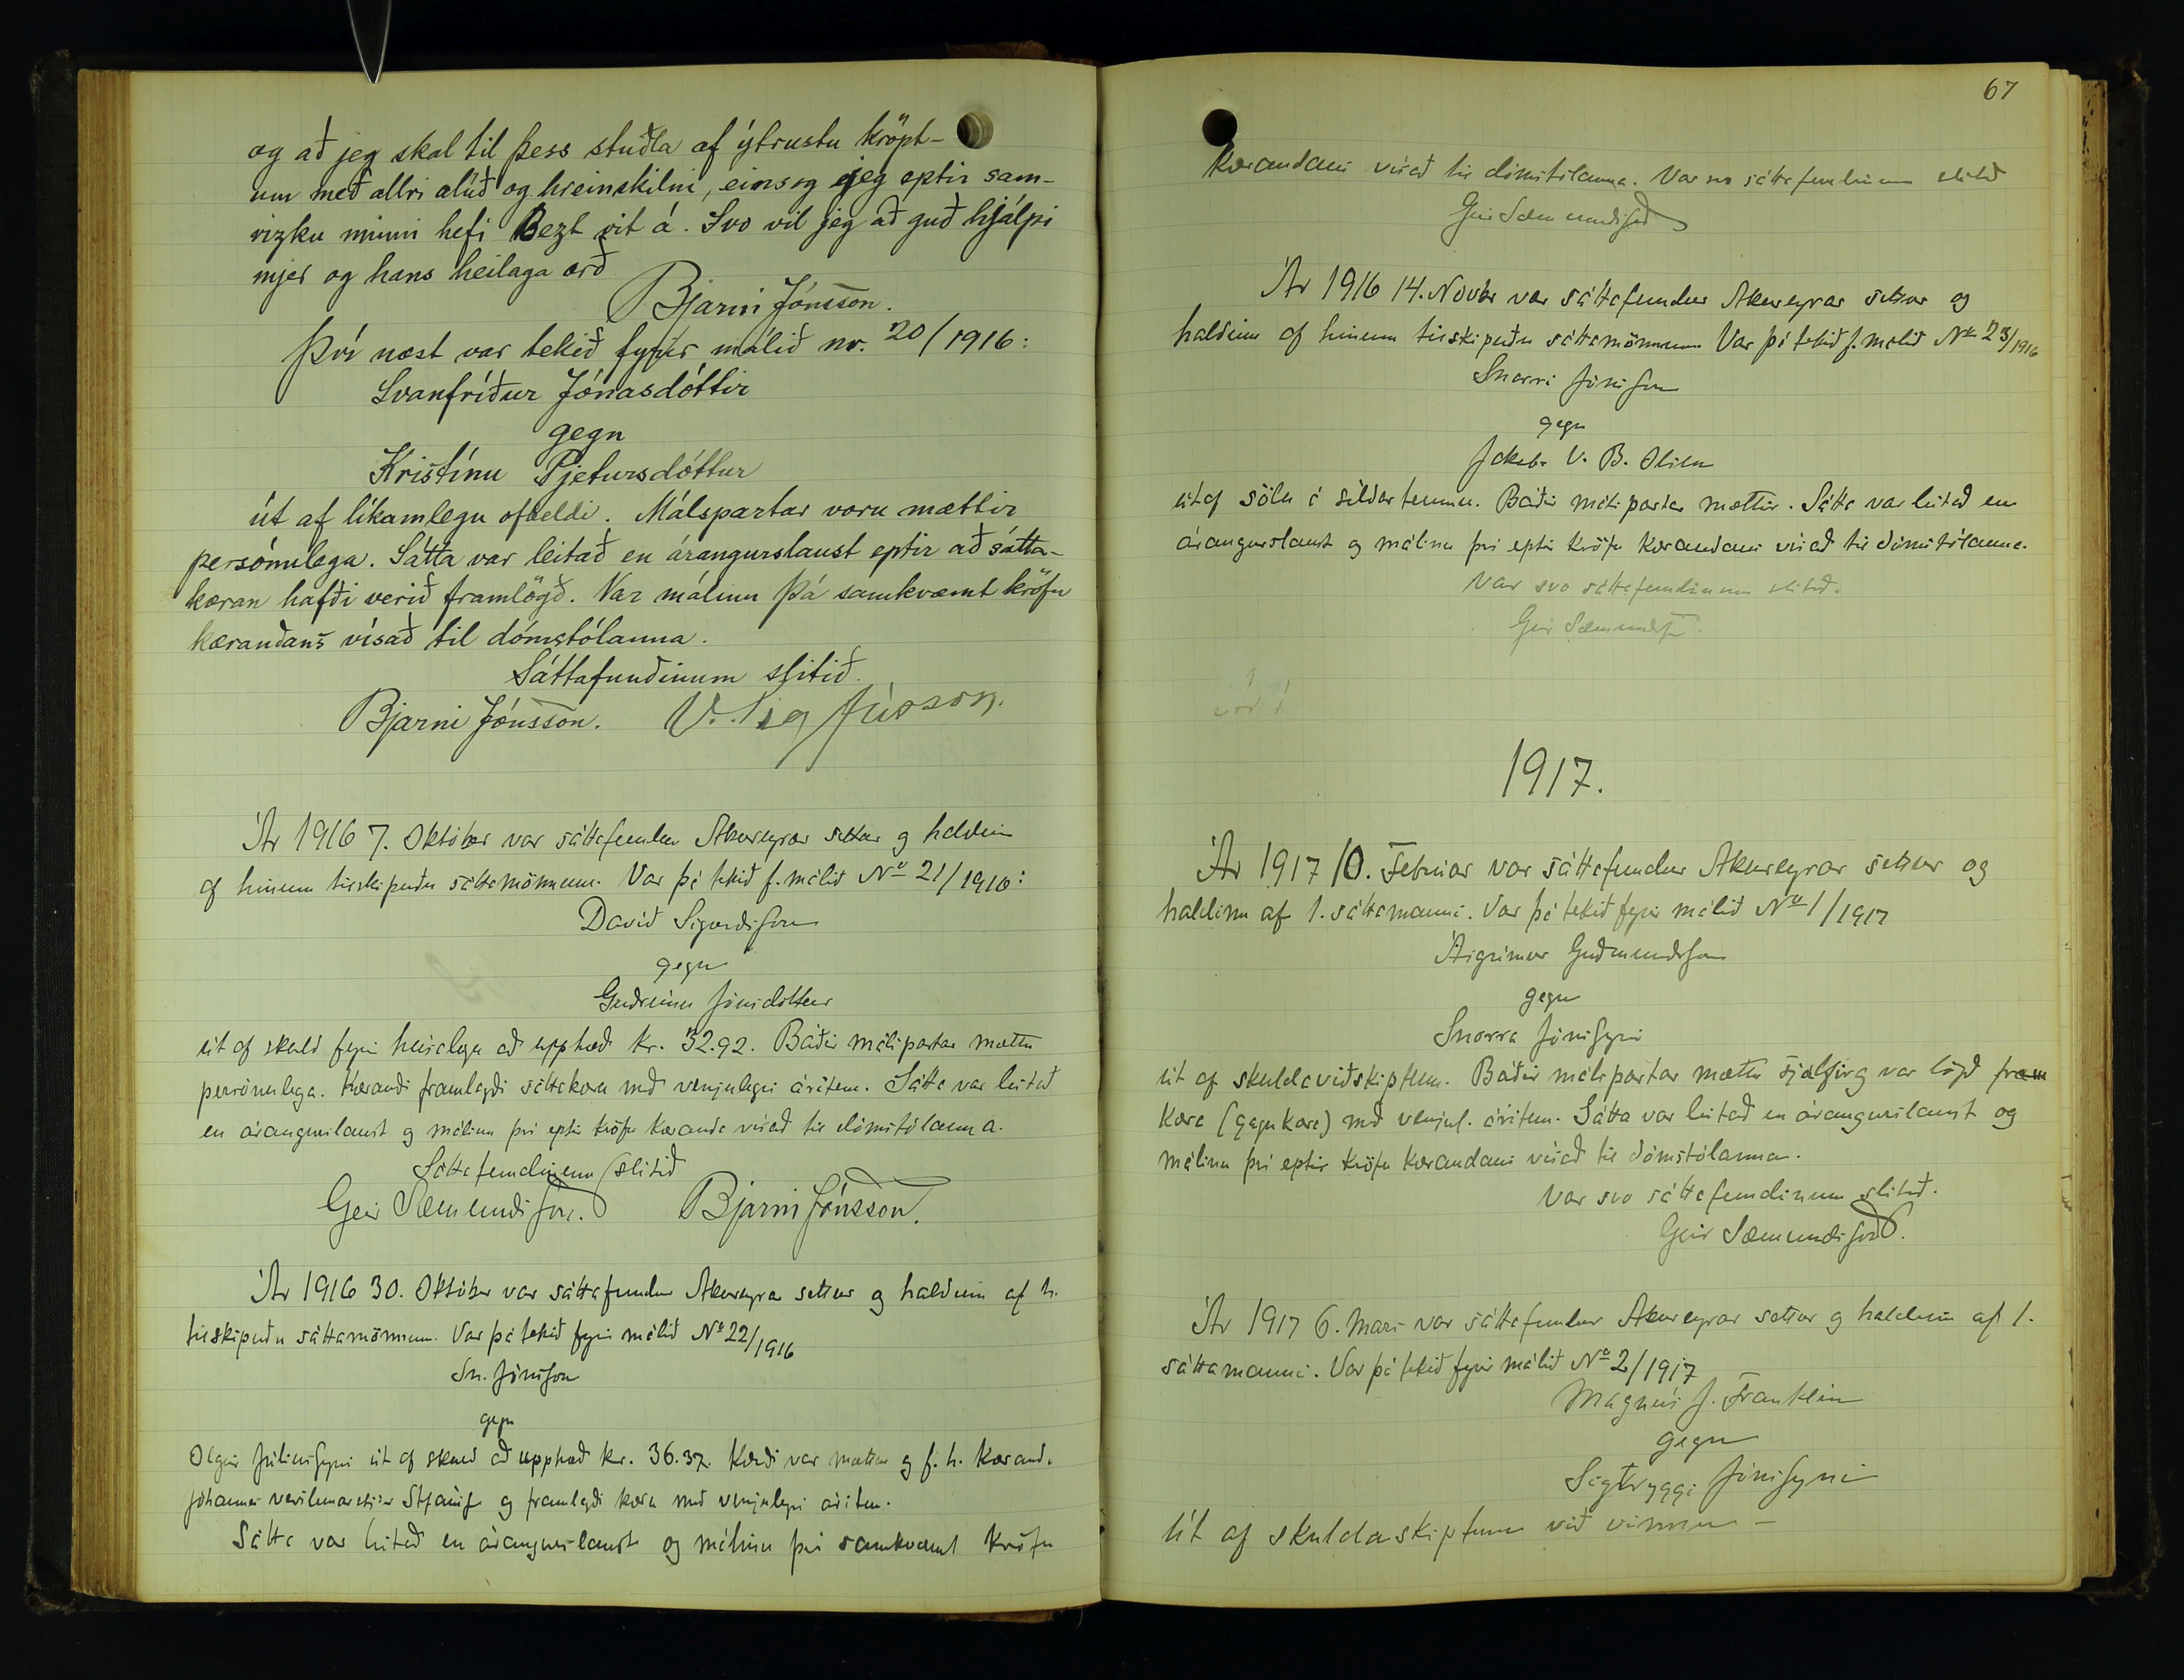 og að jeg skal til þess stuðla af ýtrustu kröpt-
um með allri alúð og hreinskilni, eins og jeg eptir sam-
vizku minni hefi bezt vit á. Svo vil jeg að guð hjálpi
mjer og hans heilaga orð
Bjarni Jónsson.
Því næst var tekið fyrir málið nr. 20/1916:
Svanfríður Jónasdóttir
gegn
Kristínu Pjetursdóttur
út af líkamlegu ofbeldi. Málspartar voru mættir
persónulega. Sátta var leitað en árangurslaust eptir að sátta-
kæran hafði verið framlögð. Var málinu þá samkvæmt kröfu
kærandans vísað til dómstólanna.
Sáttafundinum slitið.
Bjarni Jónsson. V. Sigfússon.
Ár 1916 7. Október var sáttafundur Akureyrar settur og haldinn
af hinum tilskipuðu sáttamönnum. Var þá tekið f. málið No 21/1916:
Davíð Sigurðsson
gegn
Guðrúnu Jónsdóttur
út af skuld fyrir húsaleigu að upphæð kr. 32.92. Báðir málspartar mættu
persónulega. Kærandi framlagði sáttakæru með venjulegri áritun. Sátta var leitað
en árangurslaust og málinu því eptir kröfu kæranda vísað til dómstólanna.
Sáttafundinum slitið
Geir Sæmundsson. Bjarni Jónsson.
Ár 1916 30. Október var sáttafundur Akureyrar settur og haldinn af h.
tilskipuðu sáttamönnum. Var þá tekið fyrir málið No 22/1916
Sn. Jónsson
gegn
Olgeir Júlíussyni út af skuld að upphæð kr. 36.37. Kærði var mættur og f. h. kærand.
Jóhannes verslunarstjóri og framlagði kæru með venjulegri áritun.
Sátta var leitað en árangurslaust og málinu því samkvæmt kröfu
67
kærandans vísað til dómstólanna. Var svo sáttafundinum slitið
Geir Sæmundsson
Ár 1916 14. Nóvbr var sáttafundur Akureyrar settur og
haldinn af hinum tilskipuðu sáttamönnum. Var þá tekið f. málið No 23/1916
Snorri Jónsson
gegn
Jakob V. B.
út af sölu á síldartunnu. Báðir málspartar mættir. Sátta var leitað en
árangurslaust og málinu því eptir kröfu kærandans vísað til dómstólanna.
Var svo sáttafundinum slitið.
Geir Sæmundsson.
1917.
Ár 1917 10. Febrúar var sáttafundur Akureyrar settur og
haldinn af 1. sáttamanni. Var þá tekið fyrir málið No 1/1917
Ásgrímur Guðmundsson
gegn
Snorra Jónssyni
út af skuldaviðskiptum. Báðir málspartar mættu sjálfir og var lögð fram
kæra (gagnkæra) með venjul. áritun. Sátta var leitað en árangurslaust og
málinu því eptir kröfu kærandans vísað til dómstólanna.
Var svo sáttafundinum slitið.
Geir Sæmundsson.
Ár 1917 6. Mars var sáttafundur Akureyrar settur og haldinn af 1.
sáttamanni. Var þá tekið fyrir málið No 2/1917
Magnús J. Franklín
gegn
Sigtryggi Jónssyni
út af skuldaskiptum við vinnu -